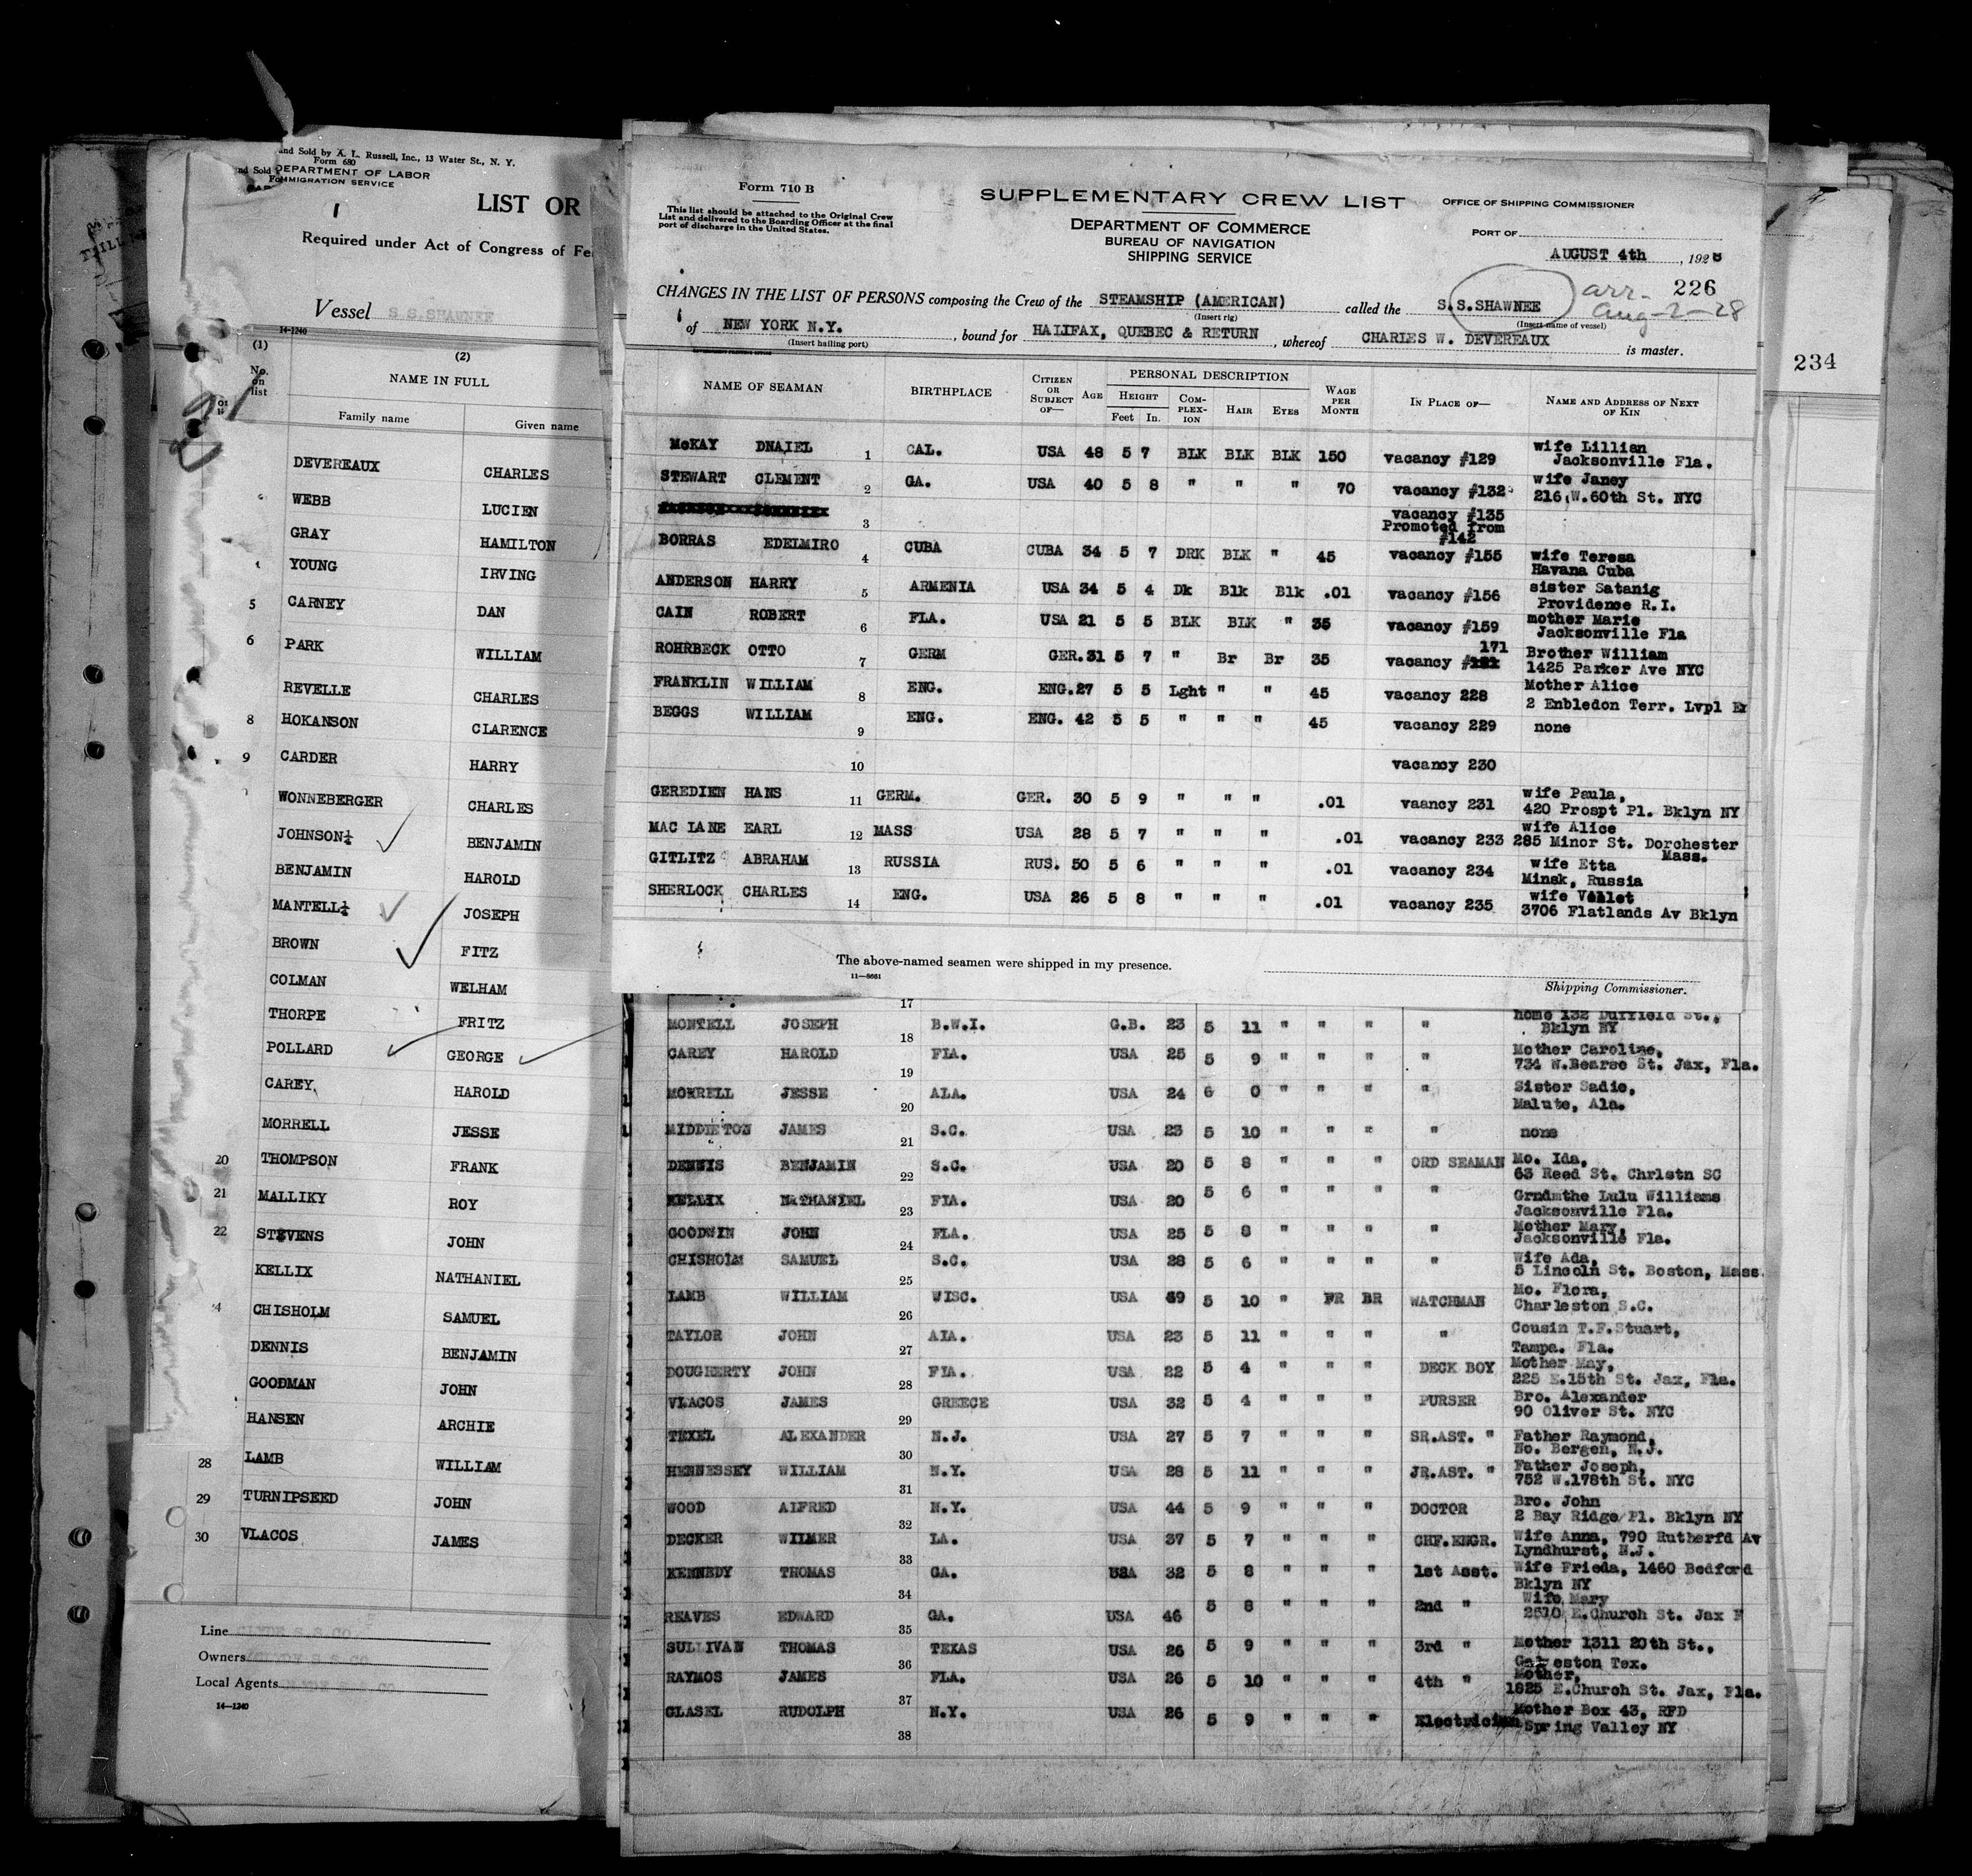 and Sold by A. L. Russell, Inc., 13 Water St., N. Y.
Form 680
DEPARTMENT OF LABOR
IMMIGRATION SERVICE
LIST OR
Required under Act of Congress of Fe
Vessel S S.SHAWNEE
14-1240
(1) (2)
No. on list
NAME IN FULL
Family name Given name
DEVEREAUX CHARLES
WEBB LUCIEN
GRAY HAMILTON
YOUNG IRVING
5 CARNEY DAN
6 PARK WILLIAM
REVELLE CHARLES
8 HOKANSON CLARENCE
9 CARDER HARRY
WONNEBERGER CHARLES
JOHNSON½ BENJAMIN
BENJAMIN HAROLD
MANTELL½ JOSEPH
BROWN FITZ
COLMAN WELHAM
THORPE FRITZ
POLLARD GEORGE
CAREY, HAROLD
MORRELL JESSE
20 THOMPSON FRANK
21 MALLIKY ROY
22 STEVENS JOHN
KELLIX NATHANIEL
4 CHISHOLM SAMUEL
DENNIS BENJAMIN
GOODMAN JOHN
HANSEN ARCHIE
28 LAMB WILLIAM
29 TURNIPSEED JOHN
30 VLACOS JAMES
Line CLYDE S.S.CO.
Owners CLYDE S S CO
Local Agents
14—1240
Form 710 B
This list should be attached to the Original Crew
List and delivered to the Boarding Officer at the final
port of discharge in the United States.
SUPPLEMENTARY CREW LIST
DEPARTMENT OF COMMERCE
BUREAU OF NAVIGATION
SHIPPING SERVICE
OFFICE OF SHIPPING COMMISSIONER
PORT OF
AUGUST 4th, 1928
226
arr-
Aug-2-28
CHANGES IN THE LIST OF PERSONS composing the Crew of the STEAMSHIP (AMERICAN) called the S.S.SHAWNEE
(Insert rig) (Insert name of vessel)
of NEW YORK N.Y., bound for HALIFAX, QUEBEC & RETURN, whereof CHARLES W. DEVEREAUX is master.
(Insert hailing port)
NAME OF SEAMAN BIRTHPLACE CITIZEN OR SUBJECT OF— AGE PERSONAL DESCRIPTION WAGE PER MONTH IN PLACE OF— NAME AND ADDRESS OF NEXT OF KIN
HEIGHT COMPLEX-ION HAIR EYES
Feet In.
McKAY DNAIEL 1 CAL. USA 48 5 7 BLK BLK BLK 150 vacancy #129 wife Lillian
Jacksonville Fla.
STEWART CLEMENT 2 GA. USA 40 5 8 " " " 70 vacancy #132 wife Janey
216 W.60th St. NYC
3 vacancy #135
Promoted from
#142
BORRAS EDELMIRO 4 CUBA CUBA 34 5 7 DRK BLK " 45 vacancy #155 wife Teresa
Havana Cuba
ANDERSON HARRY 5 ARMENIA USA 34 5 4 Dk Blk Blk .01 vacancy #156 sister Satanig
Providence R.I.
CAIN ROBERT 6 FLA. USA 21 5 5 BLK BLK " 35 vacancy #159 mother Marie
Jacksonville Fla
171
ROHRBECK OTTO 7 GERM GER. 31 5 7 " Br Br 35 vacancy # Brother William
1425 Parker Ave NYC
FRANKLIN WILLIAM 8 ENG. ENG. 27 5 5 Lght " " 45 vacancy 228 Mother Alice
2 Enbledon Terr. Lvpl En
BEGGS WILLIAM 9 ENG. ENG. 42 5 5 " " " 45 vacancy 229 none
10 vacancy 230
GEREDIEN HANS 11 GERM. GER. 30 5 9 " " " .01 vaancy 231 wife Paula,
420 Prospt Pl. Bklyn NY
MAC LANE EARL 12 MASS USA 28 5 7 " " " .01 vacancy 233 wife Alice
285 Minor St. Dorchester
Mass.
GITLITZ ABRAHAM 13 RUSSIA RUS. 50 5 6 " " " .01 vacancy 234 wife Etta
Minsk, Russia
SHERLOCK CHARLES 14 ENG. USA 26 5 8 " " " .01 vacancy 235 wife
3706 Flatlands Av Bklyn
The above-named seamen were shipped in my presence.
11—8661
Shipping Commissioner.
17 home 132 Duffield St.,
Bklyn NY
MONTELL JOSEPH 18 B.W.I. G.B. 23 5 11 " " " "
CAREY HAROLD 19 FLA. USA 25 5 9 " " " " Mother Caroline,
734 W.Bearse St. Jax, Fla.
MORRELL JESSE 20 ALA. USA 24 6 0 " " " " Sister Sadie,
Malute, Ala.
MIDDLETON JAMES 21 S.C. USA 23 5 10 " " " " none
DENNIS BENJAMIN 22 S.C. USA 20 5 8 " " " ORD SEAMAN Mo. Ida,
63 Reed St. Chrlstn SC
KELLIX NATHANIEL 23 FLA. USA 20 5 6 " " " " Grndmthe Lulu Williams
Jacksonville Fla.
GOODWIN JOHN 24 FLA. USA 25 5 8 " " " " Mother Mary,
Jacksonville Fla.
CHISHOLM SAMUEL 25 S.C. USA 28 5 6 " " " " Wife Ada,
5 Lincoln St. Boston, Mass.
LAMB WILLIAM 26 WISC. USA 69 5 10 " FR BR WATCHMAN Mo. Flora,
Charleston S.C.
TAYLOR JOHN 27 ALA. USA 23 5 11 " " " " Cousin T.F.Stuart,
Tampa. Fla.
DOUGHERTY JOHN 28 FLA. USA 22 5 4 " " " DECK BOY Mother May,
225 E.15th St. Jax, Fla.
VLACOS JAMES 29 GREECE USA 32 5 4 " " " PURSER Bro. Alexander
90 Oliver St. NYC
TEXEL ALEXANDER 30 N.J. USA 27 5 7 " " " SR.AST. " Father Raymond,
No. Bergen, N.J.
HENNESSEY WILLIAM 31 N.Y. USA 28 5 11 " " " JR.AST. " Father Joseph,
752 W.178th St. NYC
WOOD ALFRED 32 N.Y. USA 44 5 9 " " " DOCTOR Bro. John
2 Bay Ridge Pl. Bklyn NY
DECKER WILMER 33 LA. USA 37 5 7 " " " CHF.ENGR. Wife Anna, 790 Rutherfd Av
Lyndhurst, N.J.
KENNEDY THOMAS 34 GA. USA 32 5 8 " " " 1st Asst. Wife Frieda, 1460 Bedford
Bklyn NY
REAVES EDWARD 35 GA. USA 46 5 8 " " " 2nd " Wife Mary
2510 E.Church St. Jax F
SULLIVAN THOMAS 36 TEXAS USA 26 5 9 " " " 3rd " Mother 1311 20th St.,
Galveston Tex.
RAYMOS JAMES 37 FLA. USA 26 5 10 " " " 4th " Mother,
1825 E.Church St. Jax, Fla.
GLASEL RUDOLPH 38 N.Y. USA 26 5 9 " " " Electrician Mother Box 43, RFD
Spring Valley NY
234